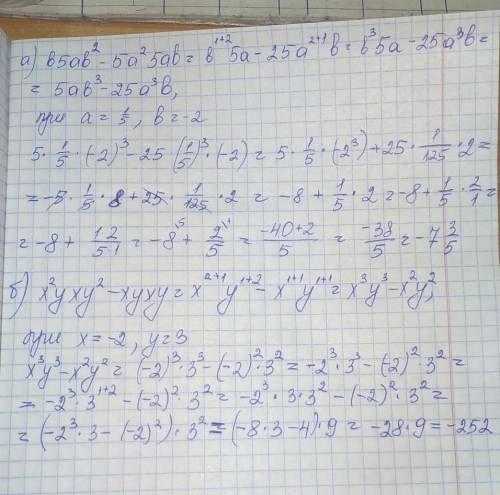 а) b5ab² - 5a²5ab = b¹⁺²5a - 25a²⁺¹b = b³5a - 25a³b =
= 5ab³ - 25a³b,
при a = 1/5, b = -2
5 · 1/5 · (-2)³ - 25 · (1/5)³ · (-2) = 5 · 1/5 · (-2³) + 25 · 1/125 · 2 =
= -5 · 1/5 · 8 + 25 · 1/125 · 2 = -8 + 1/5 · 2 = -8 + 1/5 · 2/1 =
= -8 + 1·2/5·1 = -8\⁵ + 2/5\¹ = -40+2/5 = -38/5 = -7 3/5
б) x²yxy² - xyxy = x²⁺¹y¹⁺² - x¹⁺¹y¹⁺¹ = x³y³ - x²y²,
при x = -2, y = 3
x³y³ - x²y² = (-2)³ · 3³ - (-2)² · 3² = -2³ · 3³ - (-2)² · 3² =
= -2³ · 3¹⁺² - (-2)² · 3² = -2³ · 3 · 3² - (-2)² · 3² =
= (-2³ · 3 - (-2)²) · 3² = (-8 · 3 - 4) · 9 = -28 · 9 = -252